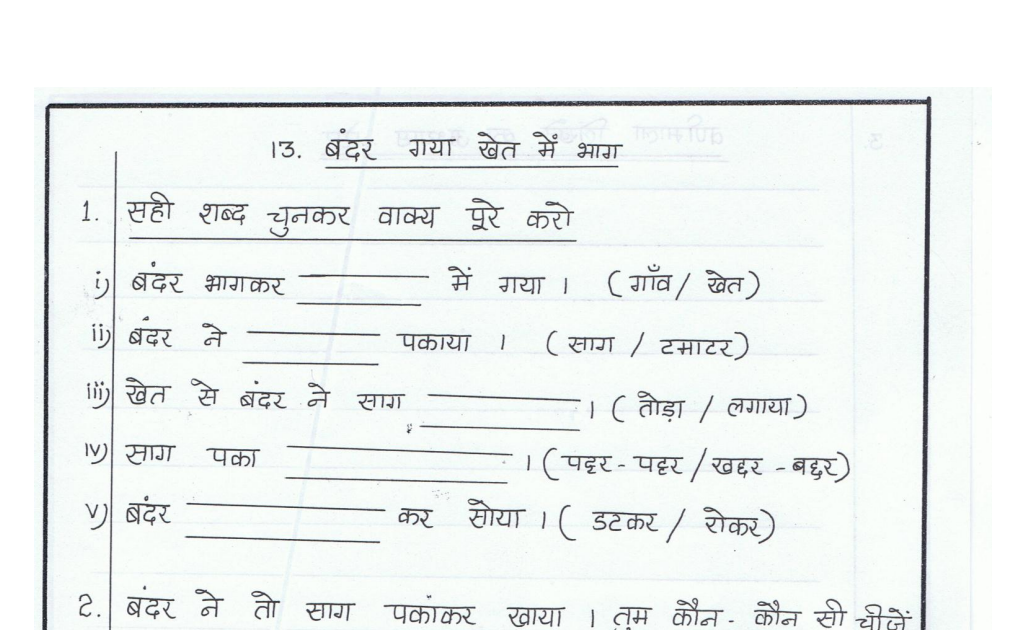 13. बंदर गया खेत में भाग
1. सही शब्द चुनकर वाक्य पूरे करो
i) बंदर भागकर ________ में गया । (गाँव / खेत)
ii) बंदर ने ________ पकाया । (साग / टमाटर)
iii) खेत से बंदर ने साग ________ । (तोड़ा / लगाया)
iv) साग पका ________ । (पद्दर - पद्दर / खद्दर - बद्दर)
v) बंदर ________ कर सोया । ( डटकर / रोकर)
2. बंदर ने तो साग पकाकर खाया । तुम कौन - कौन सी चीजें